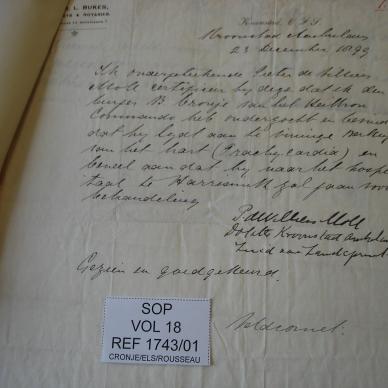 L. BUKES,
& NOTARIS.
Kroonstad, O.V.S.
Kroonstad Ambulans
23 December 1899
Ik ondergeteekende Pieter de Villiers
Moll certificeer by deze dat ik den
burger B Cronje van het Heilbron
Commando heb onderzocht en bevind
dat hy lydt aan te vinnige werking
van het hart (Trachycardia) en
beveel aan dat hy naar het hospi-
taal te Harrismith zal gaan voor
behandeling
P de Villiers Moll
Dokter Kroonstad Ambulans
Gezien en goedgekeurd.
Veldcornet.
SOP
VOL 18
REF 1743/01
CRONJE/ELS/ROUSSEAU